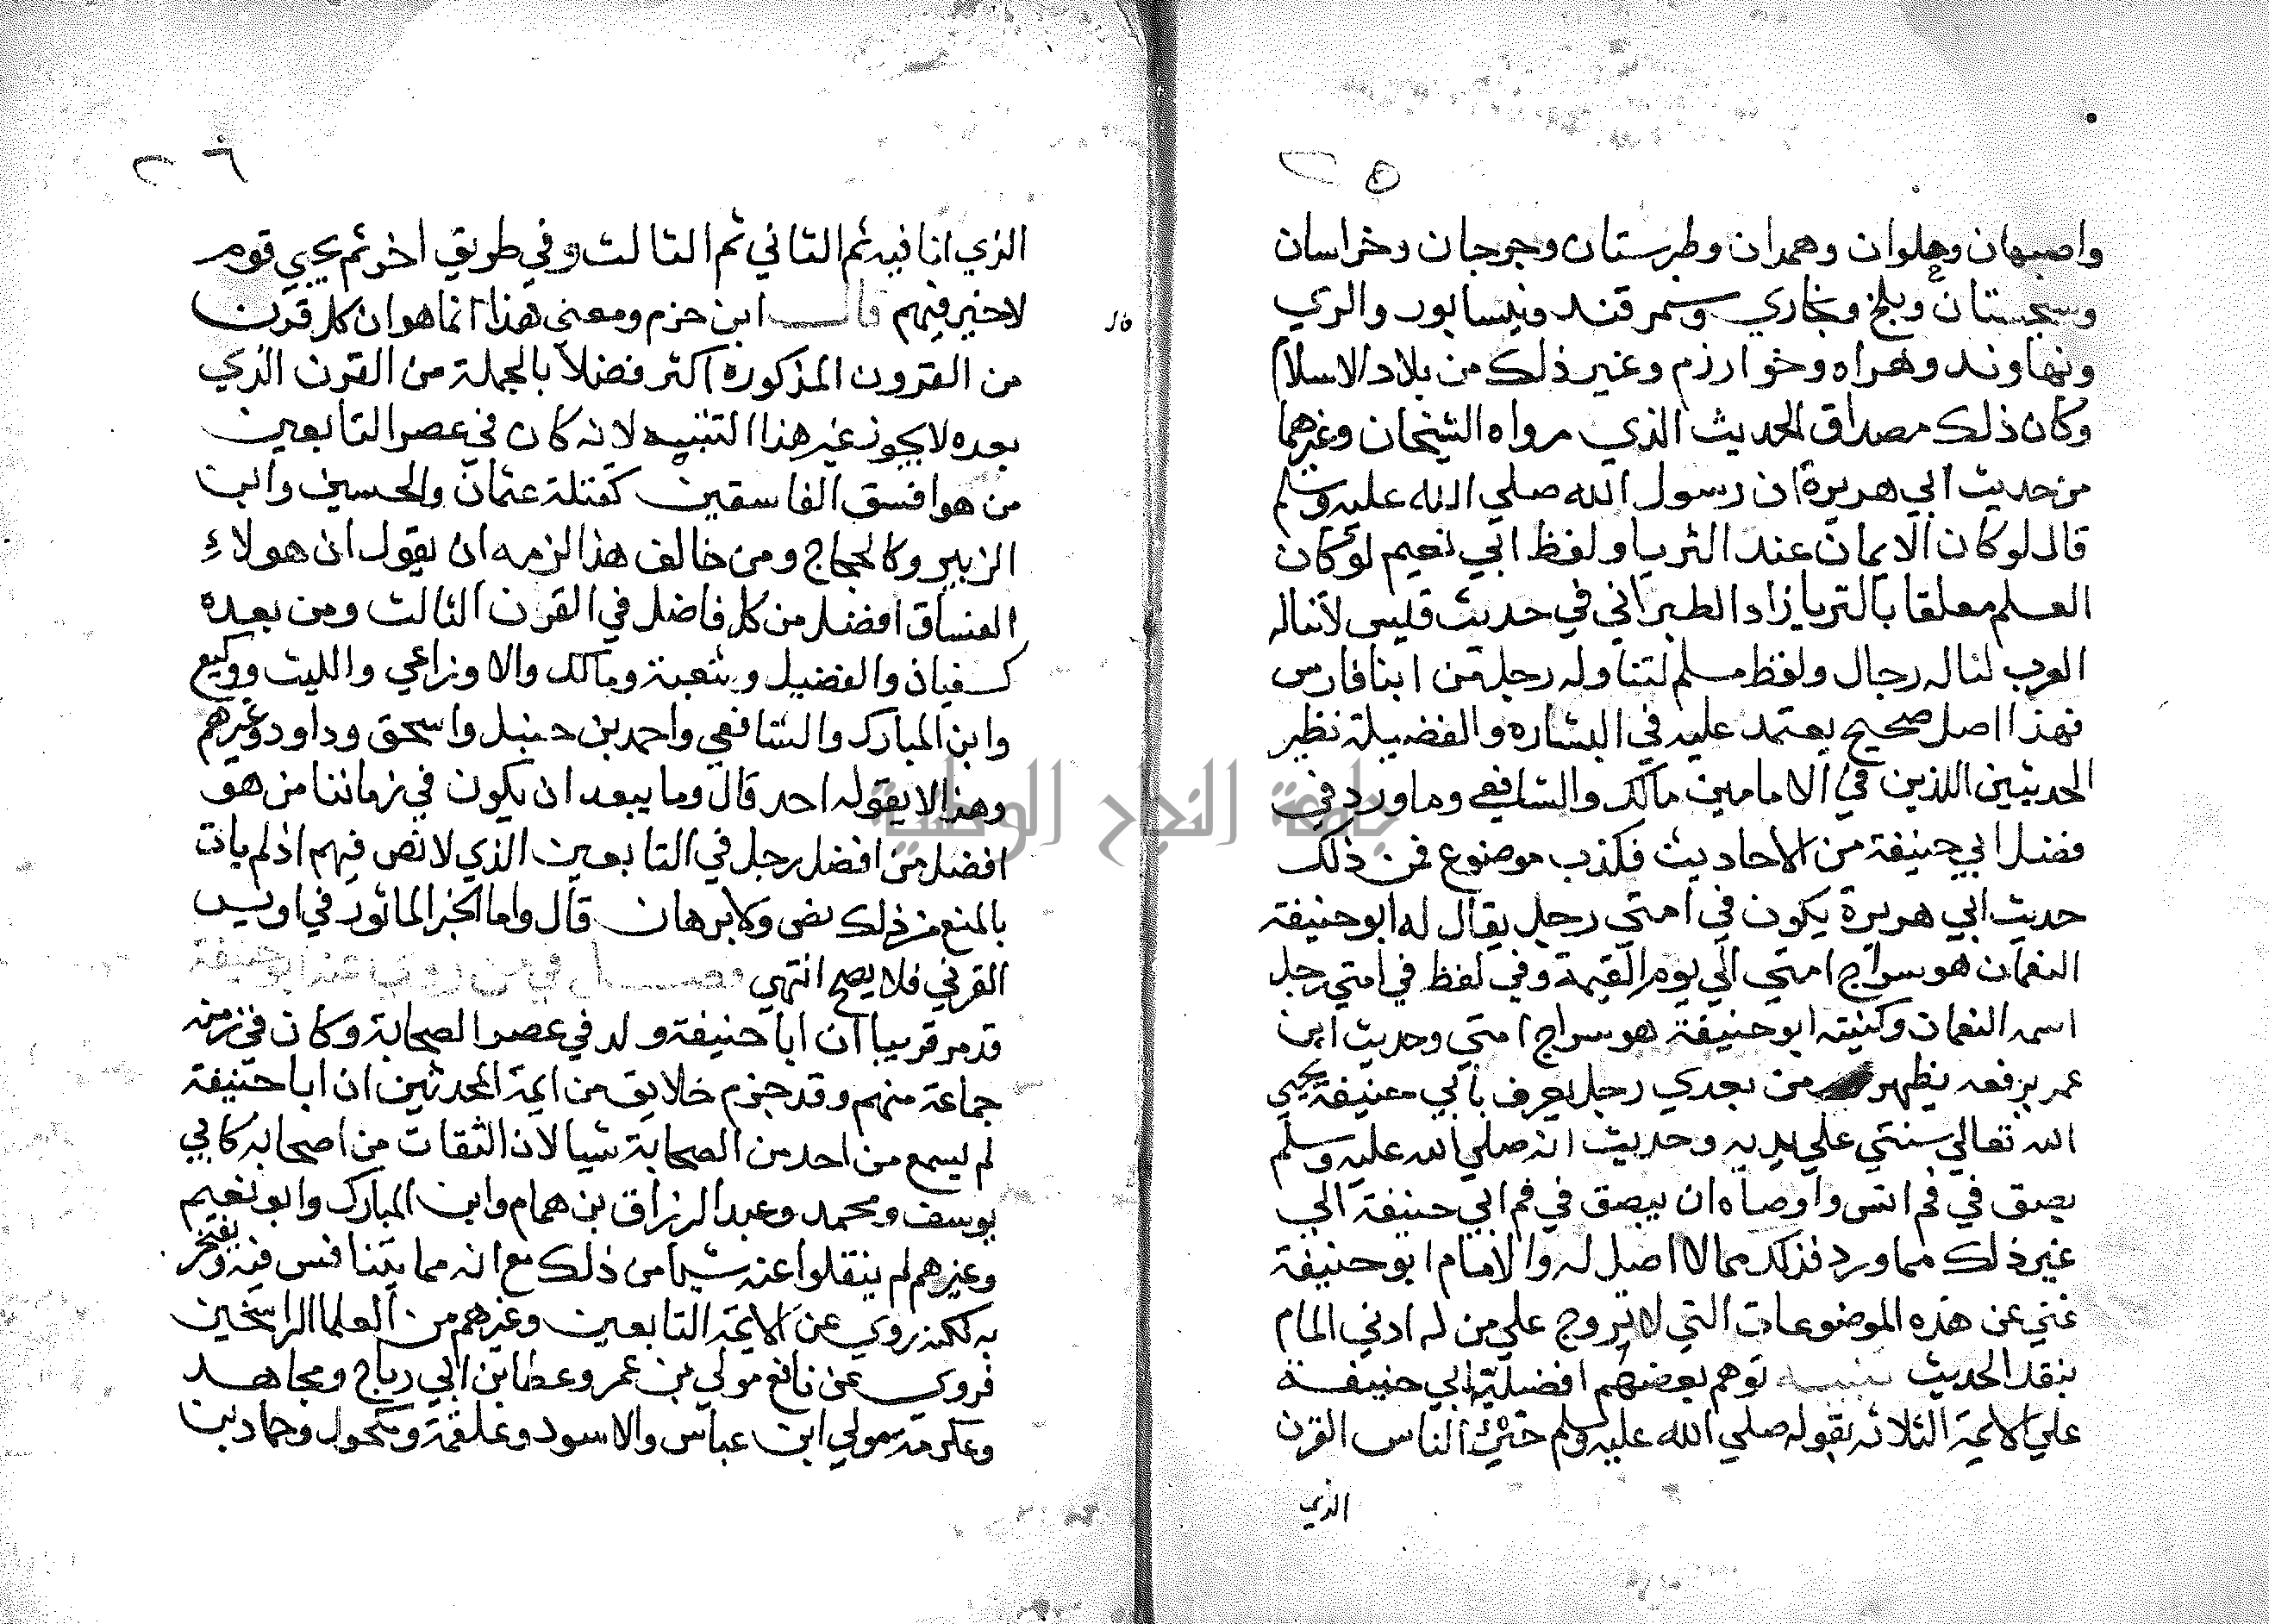 ٥
واصبهان وحلوان وهمدان وطبرستان وجرجان وخراسان
وسجستان وبلخ وبخاري وسمرقند ونيسابور والري
ونهاوند وهراه وخوارزم وغير ذلك من بلاد الاسلام
وكان ذلك مصداق الحديث الذي رواه الشيخان وغيرهما
من حديث ابي هريرة ان رسول الله صلي الله عليه وسلم
قال لو كان الايمان عند الثريا ولفظ ابي نعيم لو كان
العلم معلقا بالتريا زاد الطبراني في حديث قيس لا تناله
العرب لناله رجال ولفظ مسلم لتناوله رجل من ابنا فارس
فهذا اصل صحيح يعتمد عليه في البشاره والفضيلة نظير
الحديثين اللذين في الامامين مالك والشافعي وما ورد في
فضل ابي حنيفة من الاحاديث فكذب موضوع فمن ذلك
حديث ابي هريرة يكون في امتي رجل يقال له ابو حنيفة
النعمان هو سراج امتي الي يوم القيمة وفي لفظ في امتي رجل
اسمه النعمان وكنيته ابو حنيفة هو سراج امتي وحديث ابن
عمر يرفعه يظهر من بعدي رجل يعرف بابي حنيفة يحيي
الله تعالي سنتي علي يديه وحديث انه صلي الله عليه وسلم
بصق في فم انس واوصاه ان يبصق في فم ابي حنيفة الي
غير ذلك مما ورد فذلك مما لا اصل له والامام ابو حنيفة
غني عن هذه الموضوعات التي لا تروج علي من له ادني المام
بنقد الحديث تنبيه توهم بعضهم افضلية ابي حنيفة
علي الايمة الثلاثه بقوله صلي الله عليه وسلم خير الناس القرن
الذي
٦
الذي انا فيه ثم التاني ثم التالث وفي طريق اخر ثم يجي قوم
لا خير فيهم قال ابن حزم ومعني هذا انما هو ان كل قرن
من القرون المذكوره اكثر فضلا بالجملة من القرن الذي
بعده لا يجوز غير هذا التنبيه لانه كان في عصر التابعين
من هو افسق الفاسقين كقتلة عثمان والحسين وابن
الزبير وكالحجاج ومن خالف هذا لزمه ان يقول ان هولاء
الفساق افضل من كل فاضل في القرن الثالث ومن بعده
كسفيان والفضيل وشعبة ومالك والاوزاعي والليث ووكيع
وابن المبارك والشافعي واحمد بن حنبل واسحق وداود وغيرهم
وهذا لا يقوله احد قال وما يبعد ان يكون في زماننا من هو
افضل من افضل رجل في التابعين الذي لا نص فيهم اذ لم يات
بالمنع من ذلك نص ولا برهان قال واما الخبر الماثور في اويس
القرني فلا يصح انتهي
قد مر قريبا ان ابا حنيفة ولد في عصر الصحابة وكان في زمنه
جماعة منهم وقد جزم خلايق من ايمة المحدثين ان ابا حنيفة
لم يسمع من احد من الصحابة شيا لان الثقات من اصحابه كابي
يوسف ومحمد وعبد الرزاق بن همام وابن المبارك وابو نعيم
وغيرهم لم ينقلوا عنه شيا من ذلك مع انه مما يتنافس فيه ويفتخر
به لكنه روي عن الايمة التابعين وغيرهم من العلما الراسخين
فروي عن نافع مولي بن عمر وعطا بن ابي رباح ومجاهد
وعكرمة مولي ابن عباس والاسود وعلقمة ومكحول وحماد بن
جامعة النجاح الوطنية